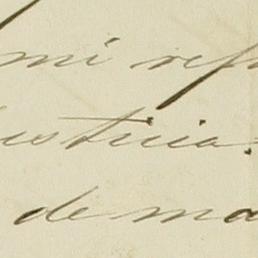 mi ref
usticia.
de ma